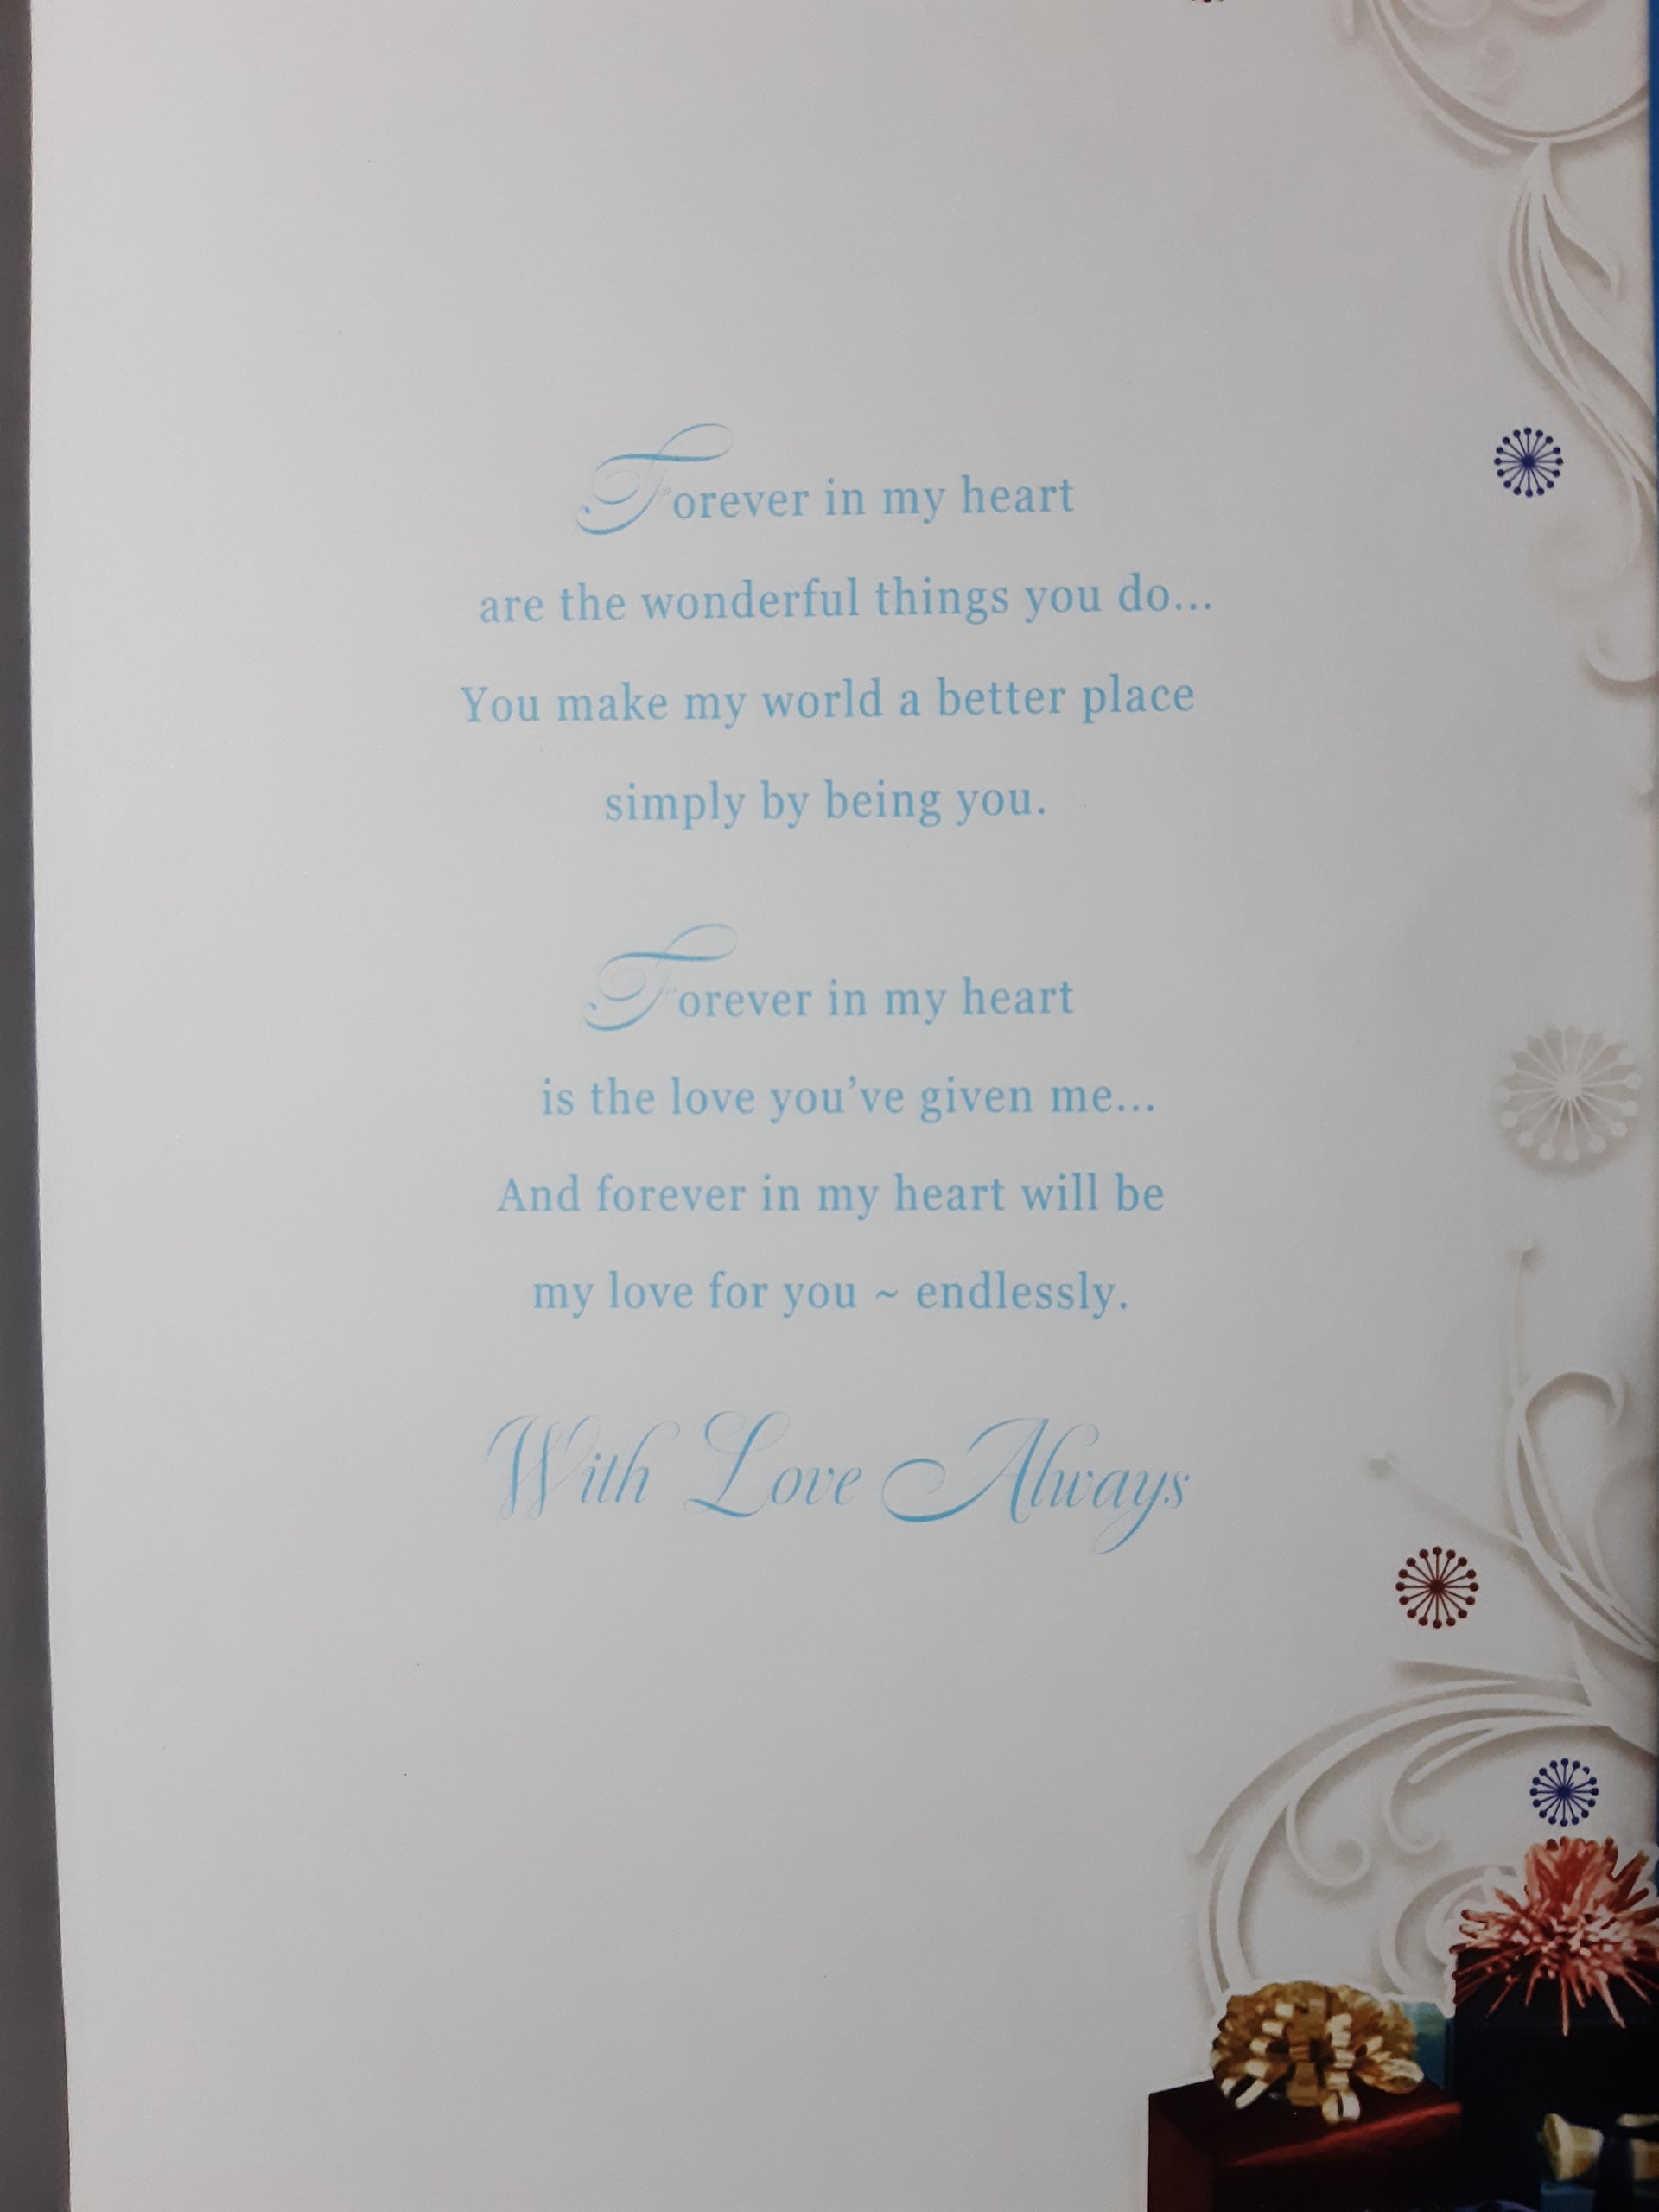 Forever in my heart
are the wonderful things you do...
You make my world a better place
simply by being you.
Forever in my heart
is the love you've given me...
And forever in my heart will be
my love for you ~ endlessly.
With Love Always